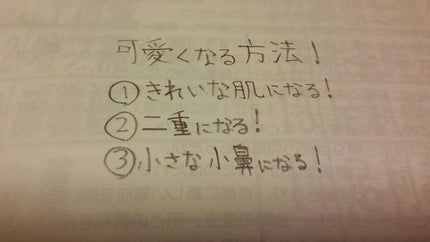 可愛くなる方法!
①きれいな肌になる!
②二重になる!
③小さな小鼻になる!